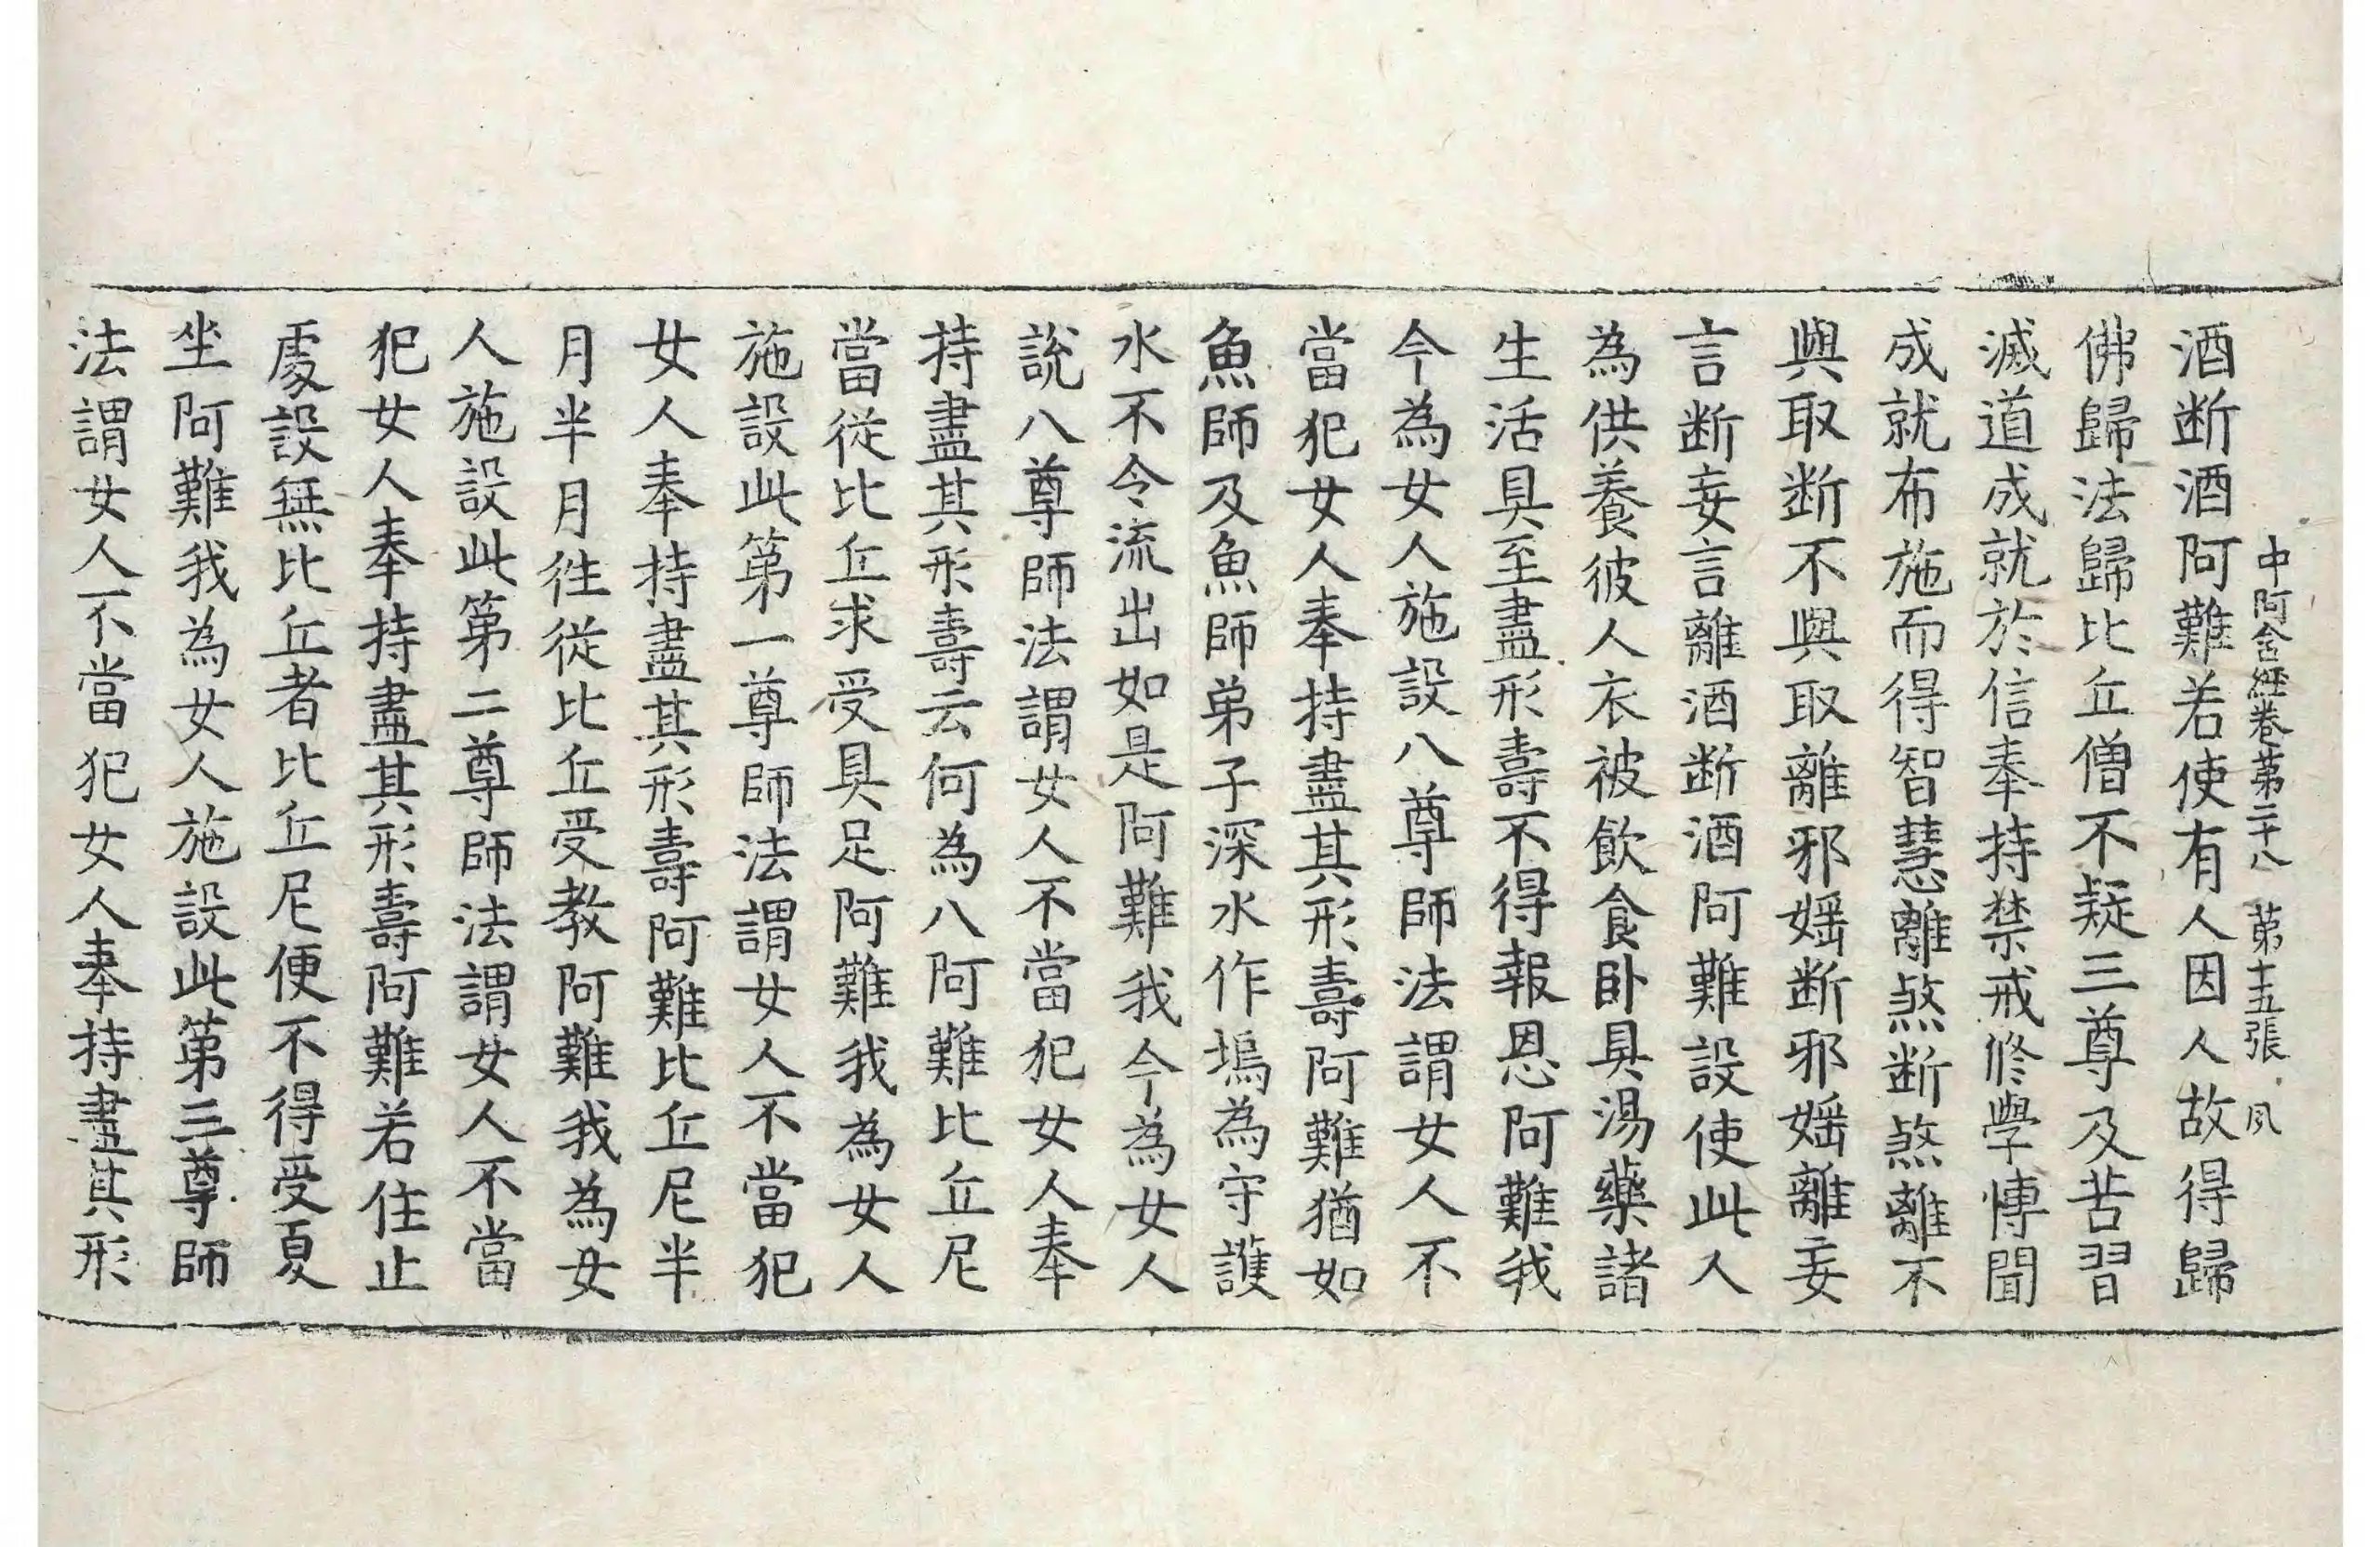 中阿含經卷第二十八 第十五張 風
酒断酒阿難若使有人因人故得歸
佛歸法歸比丘僧不疑三尊及苦習
滅道成就於信奉持禁戒修學博聞
成就布施而得智慧離煞断煞離不
與取断不與取離邪婬断邪婬離妄
言断妄言離酒断酒阿難設使此人
為供養彼人衣被飲食卧具湯藥諸
生活具至盡形壽不得報恩阿難我
今為女人施設八尊師法謂女人不
當犯女人奉持盡其形壽阿難猶如
魚師及魚師弟子深水作塢為守護
水不令流出如是阿難我今為女人
說八尊師法謂女人不當犯女人奉
持盡其形壽云何為八阿難比丘尼
當從比丘求受具足阿難我為女人
施設此第一尊師法謂女人不當犯
女人奉持盡其形壽阿難比丘尼半
月半月往從比丘受教阿難我為女
人施設此第二尊師法謂女人不當
犯女人奉持盡其形壽阿難若住止
處設無比丘者比丘尼便不得受夏
坐阿難我為女人施設此第三尊師
法謂女人不當犯女人奉持盡其形